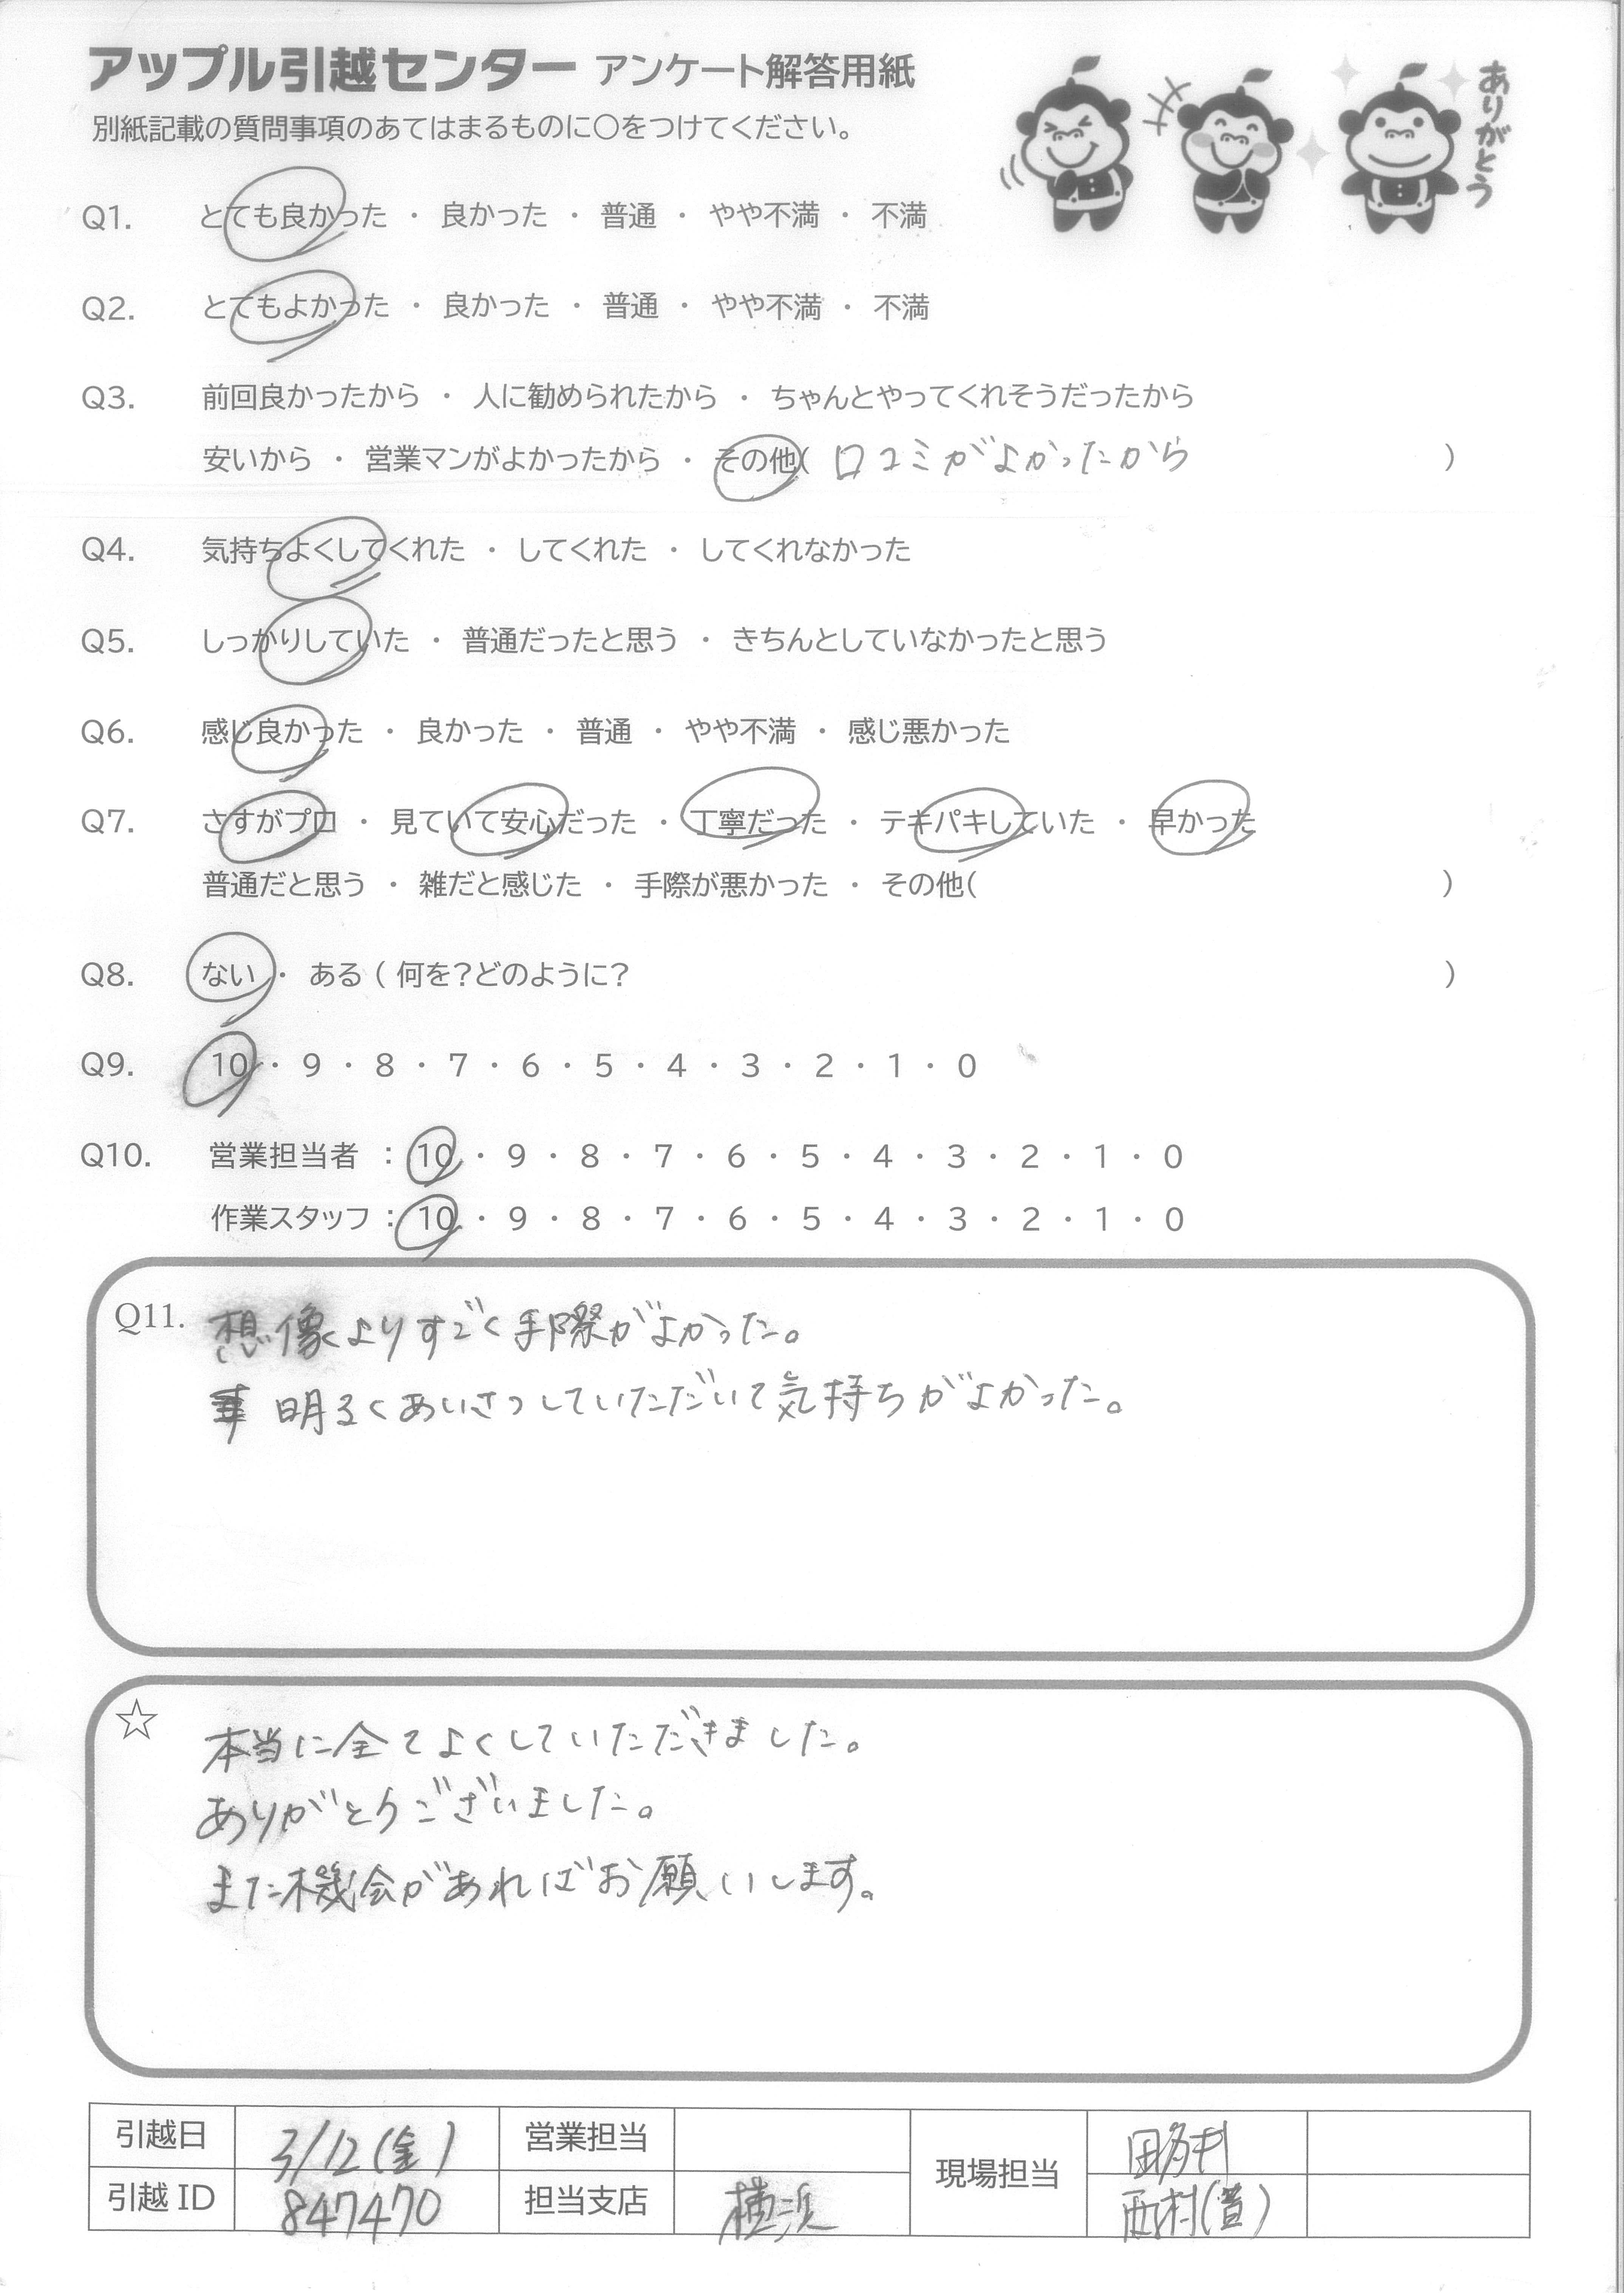 アップル引越センター アンケート解答用紙
別紙記載の質問事項のあてはまるものに○をつけてください。
ありがとう
Q1. とても良かった ・ 良かった ・ 普通 ・ やや不満 ・ 不満
Q2. とてもよかった ・ 良かった ・ 普通 ・ やや不満 ・ 不満
Q3. 前回良かったから ・ 人に勧められたから ・ ちゃんとやってくれそうだったから
安いから ・ 営業マンがよかったから ・ その他( 口コミがよかったから )
Q4. 気持ちよくしてくれた ・ してくれた ・ してくれなかった
Q5. しっかりしていた ・ 普通だったと思う ・ きちんとしていなかったと思う
Q6. 感じ良かった ・ 良かった ・ 普通 ・ やや不満 ・ 感じ悪かった
Q7. さすがプロ ・ 見ていて安心だった ・ 丁寧だった ・ テキパキしていた ・ 早かった
普通だと思う ・ 雑だと感じた ・ 手際が悪かった ・ その他( )
Q8. ない ・ ある ( 何を?どのように? )
Q9. 10 ・ 9 ・ 8 ・ 7 ・ 6 ・ 5 ・ 4 ・ 3 ・ 2 ・ 1 ・ 0
Q10. 営業担当者 : 10 ・ 9 ・ 8 ・ 7 ・ 6 ・ 5 ・ 4 ・ 3 ・ 2 ・ 1 ・ 0
作業スタッフ : 10 ・ 9 ・ 8 ・ 7 ・ 6 ・ 5 ・ 4 ・ 3 ・ 2 ・ 1 ・ 0
Q11. 想像よりすごく手際がよかった。
明るくあいさつしていただいて気持ちがよかった。
☆ 本当に全てよくしていただきました。
ありがとうございました。
また機会があればお願いします。
引越日 3/12(金) 営業担当 現場担当
引越ID 847470 担当支店 横浜 西村